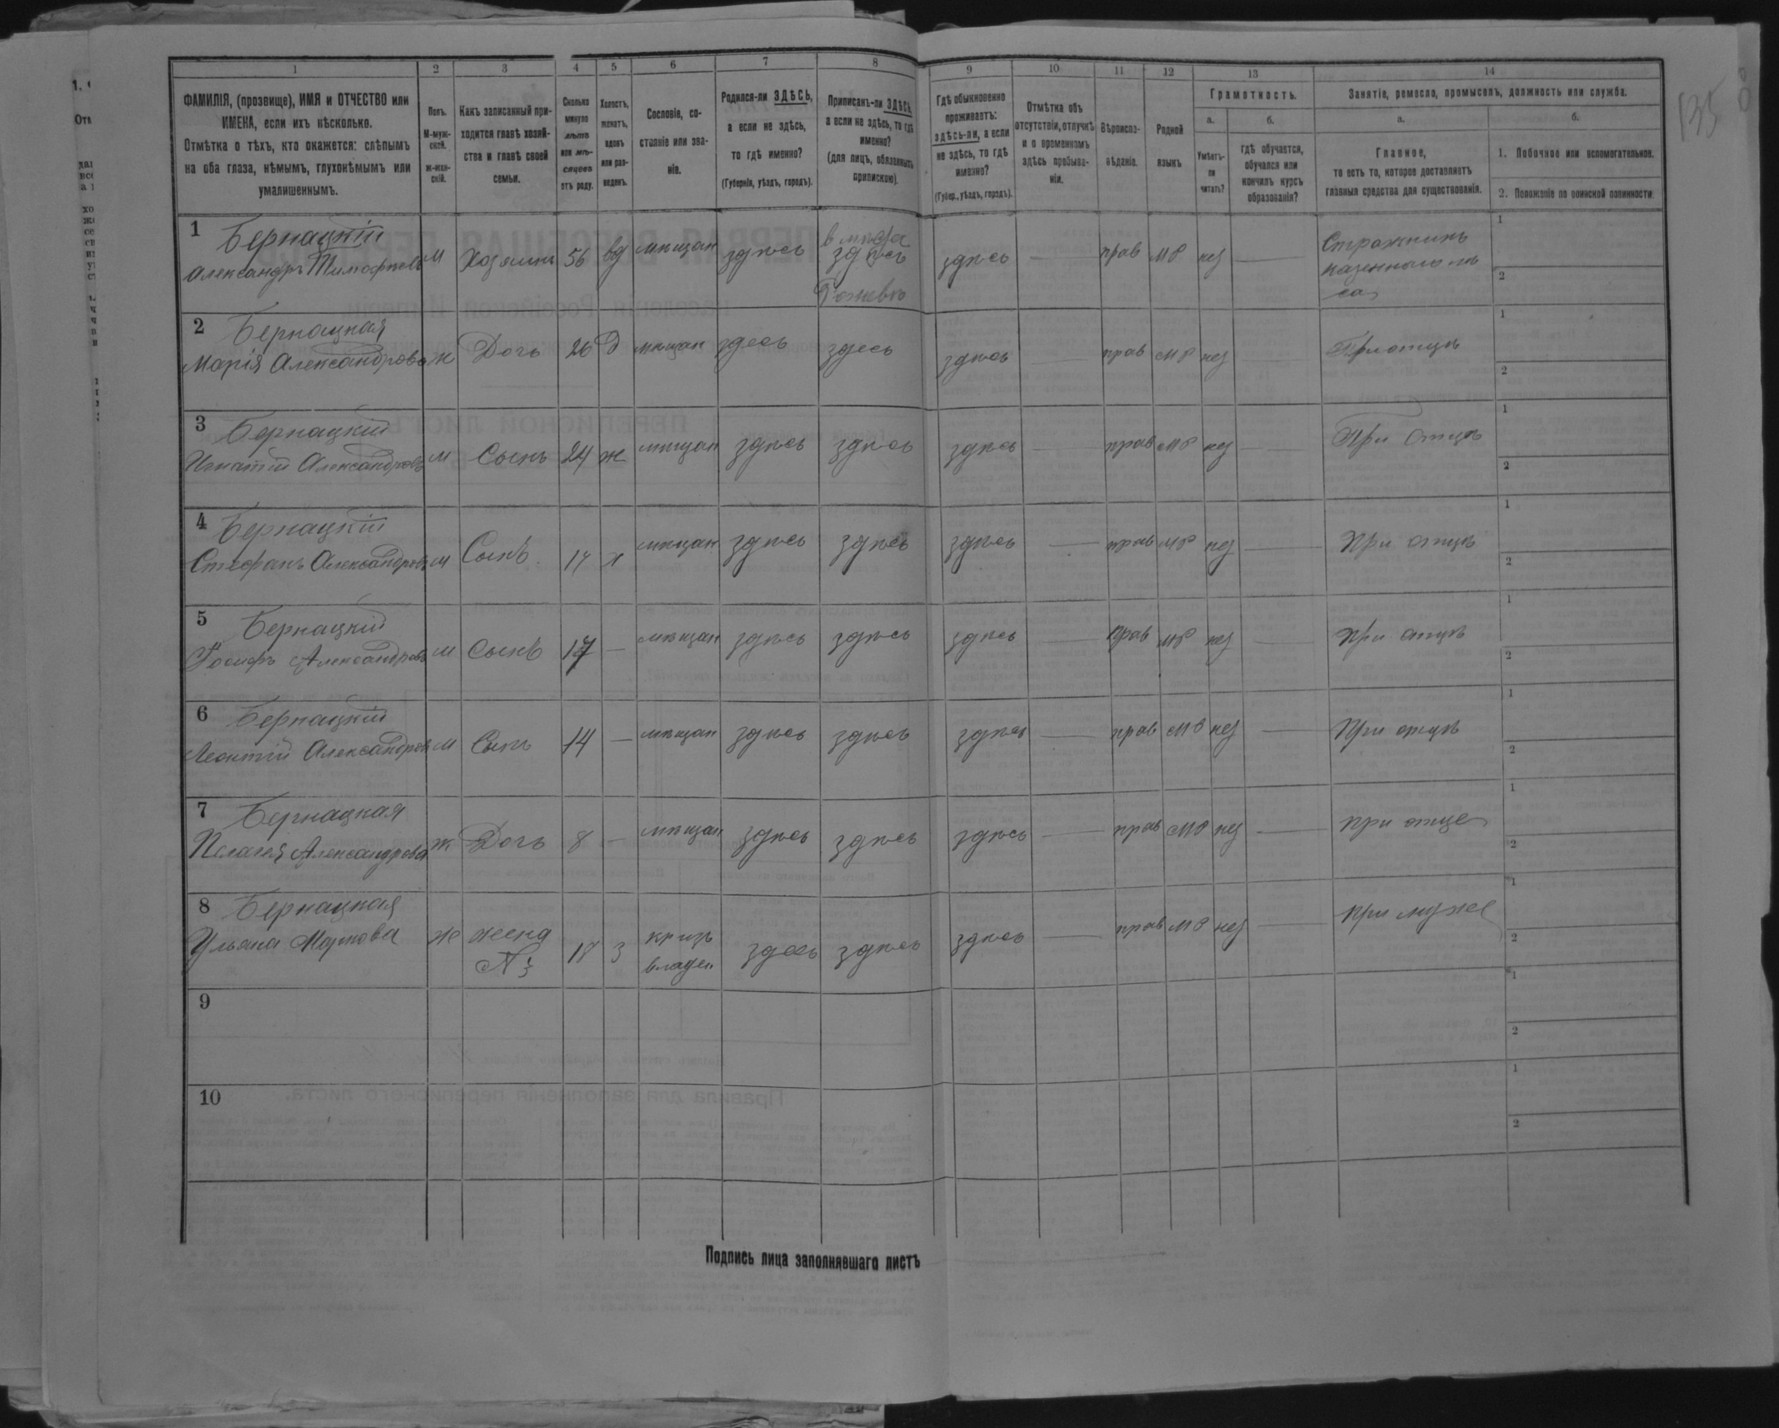 135
1 2 3 4 5 6 7 8 9 10 11 12 13 14
ФАМИЛІЯ, (прозвище), ИМЯ и ОТЧЕСТВО или
ИМЕНА, если ихъ нѣсколько.
Отмѣтка о тѣхъ, кто окажется: слѣпымъ
на оба глаза, нѣмымъ, глухонѣмымъ или
умалишеннымъ.
Полъ.
М-муж-
ской.
ж-жен-
скій.
Какъ записанный при-
ходится главѣ хозяй-
ства и главѣ своей
семьи.
Сколько
минуло
лѣтъ
или мѣ-
сяцевъ
отъ роду.
Холостъ,
женатъ,
вдовъ
или раз-
веденъ.
Сословіе, со-
стояніе или зва-
ніе.
Родился-ли ЗДѢСЬ,
а если не здѣсь,
то гдѣ именно?
(Губернія, уѣздъ, городъ).
Приписанъ-ли ЗДѢСЬ,
а если не здѣсь, то гдѣ
именно?
(для лицъ, обязанныхъ
припискою).
Гдѣ обыкновенно
проживаетъ:
здѣсь-ли, а если
не здѣсь, то гдѣ
именно?
(Губер., уѣздъ, городъ).
Отмѣтка объ
отсутствіи, отлучкѣ
и о временномъ
здѣсь пребыва-
ніи.
Вѣроиспо-
вѣданіе.
Родной
языкъ.
Грамотность.
а.
Умѣетъ-
ли
читать?
б.
гдѣ обучается,
обучался или
кончилъ курсъ
образованія?
Занятіе, ремесло, промыселъ, должность или служба.
а.
Главное,
то есть то, которое доставляетъ
главныя средства для существованія.
б.
1. Побочное или вспомогательное.
2. Положеніе по воинской повинности
1 Бернацкій
Александръ Тимофѣевъ м Хозяинъ 56 вд мѣщан здѣсь здѣсь здѣсь — прав мр нез —
Стражникъ
казеннаго лѣ
са
1
2
2 Бернацкая
Марія Александрова ж Дочь 26 д мѣщан здесь здесь здѣсь — прав мр нез — При отцѣ
1
2
3 Бернацкій
Игнатій Александровъ м Сынъ 24 ж мѣщан здѣсь здѣсь здѣсь — прав мр нез — При отцѣ
1
2
4 Бернацкій
Стефанъ Александровъ м Сынъ х мѣщан здѣсь здѣсь здѣсь — прав мр нез — При отцѣ
1
2
5 Бернацкій
Іосифъ Александровъ м Сынъ 17 — мѣщан здѣсь здѣсь здѣсь — прав мр нез — При отцѣ
1
2
6 Бернацкій
Леонтій Александров м Сынъ 14 — мѣщан здѣсь здѣсь здѣсь — прав мр нез — При отцѣ
1
2
7 Бернацкая
Пелагея Александрова ж Дочь 8 — мѣщан здѣсь здѣсь здѣсь — прав мр нез — при отце
1
2
8 Бернацкая
Ульяна Маркова ж жена
№ 3 18 з владел здесь здѣсь здѣсь — прав мр нез — При муже
1
2
9
1
2
10
1
2
Подпись лица заполнявшаго листъ